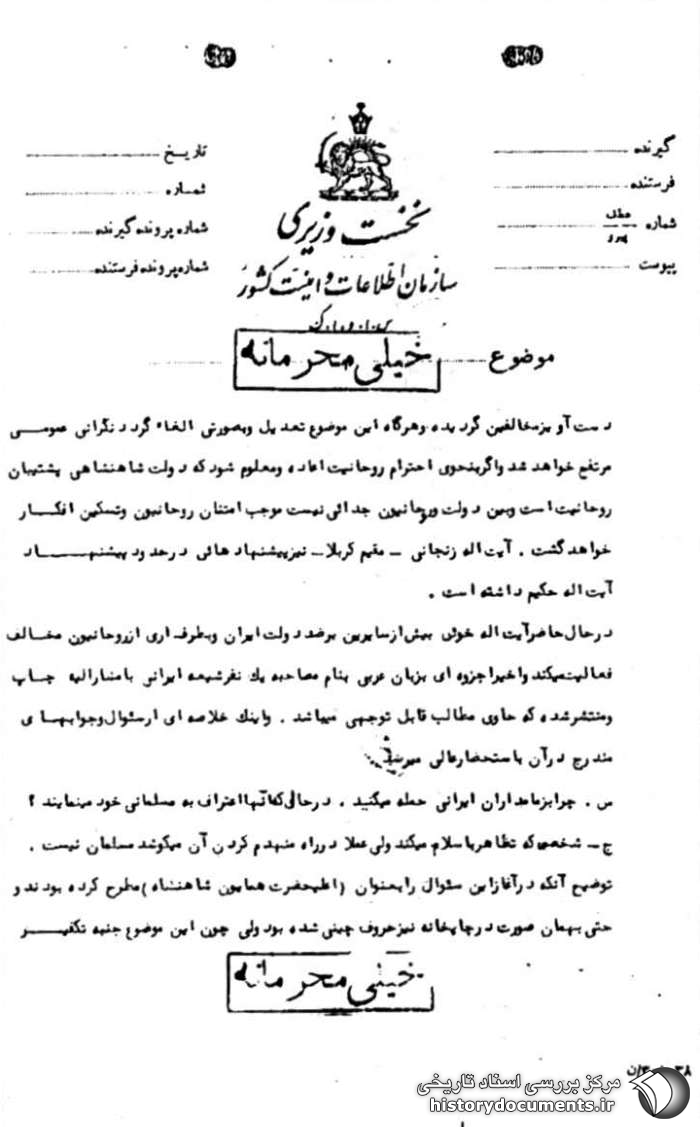 گیرنده
فرستنده
شماره
پیوست
تاریخ
شماره
شماره پرونده گیرنده
شماره پرونده فرستنده
نخست وزیری
سازمان اطلاعات و امنیت کشور
س.ا.و.ا.ک
موضوع
خیلی محرمانه
دست آویز مخالفین گردیده و هرگاه این موضوع تعدیل و بصورتی الغاء گردد نگرانی عمومی
مرتفع خواهد شد و اگر بنحوی احترام روحانیت اعاده و معلوم شود که دولت شاهنشاهی پشتیبان
روحانیت است و بین دولت و روحانیون جدائی نیست موجب امتنان روحانیون و تسکین افکار
خواهد گشت . آیت اله زنجانی - مقیم کربلا - نیز پیشنهاد هائی در حدود پیشنهاد
آیت اله حکیم داشته است .
در حال حاضر آیت اله خوئی بیش از سایرین بر ضد دولت ایران و بطرفداری از روحانیون مخالف
فعالیت میکند و اخیرا جزوه ای بزبان عربی بنام مصاحبه یك نفر شیعه ایرانی با مشارالیه چاپ
و منتشر شده که حاوی مطالب قابل توجهی میباشد . و اینك خلاصه ای از سئوال و جوابهای
مندرج در آن باستحضار عالی میرسد
س . چرا بزمامداران ایرانی حمله میکنید . در حالی که آنها اعتراف به مسلمانی خود مینمایند ؟
ج - شخصی که تظاهر باسلام میکند ولی عملا در راه منهدم کردن آن میکوشد مسلمان نیست .
توضیح آنکه در آغاز این سئوال را بعنوان (اعلیحضرت همایون شاهنشاه) مطرح کرده بودند و
حتی بهمان صورت در چاپخانه نیز حروف چینی شده بود ولی چون این موضوع جنبه تکفیر
خیلی محرمانه
مرکز بررسی اسناد تاریخی
historydocuments.ir